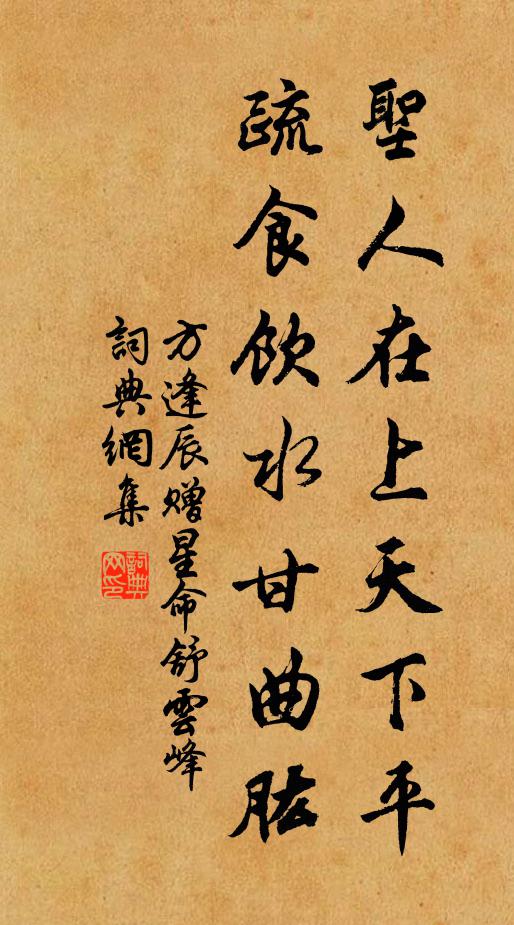 聖人在上天下平
疏食飲水甘曲肱
方逢辰贈星命舒雲峰
詞典網集
詞典網印